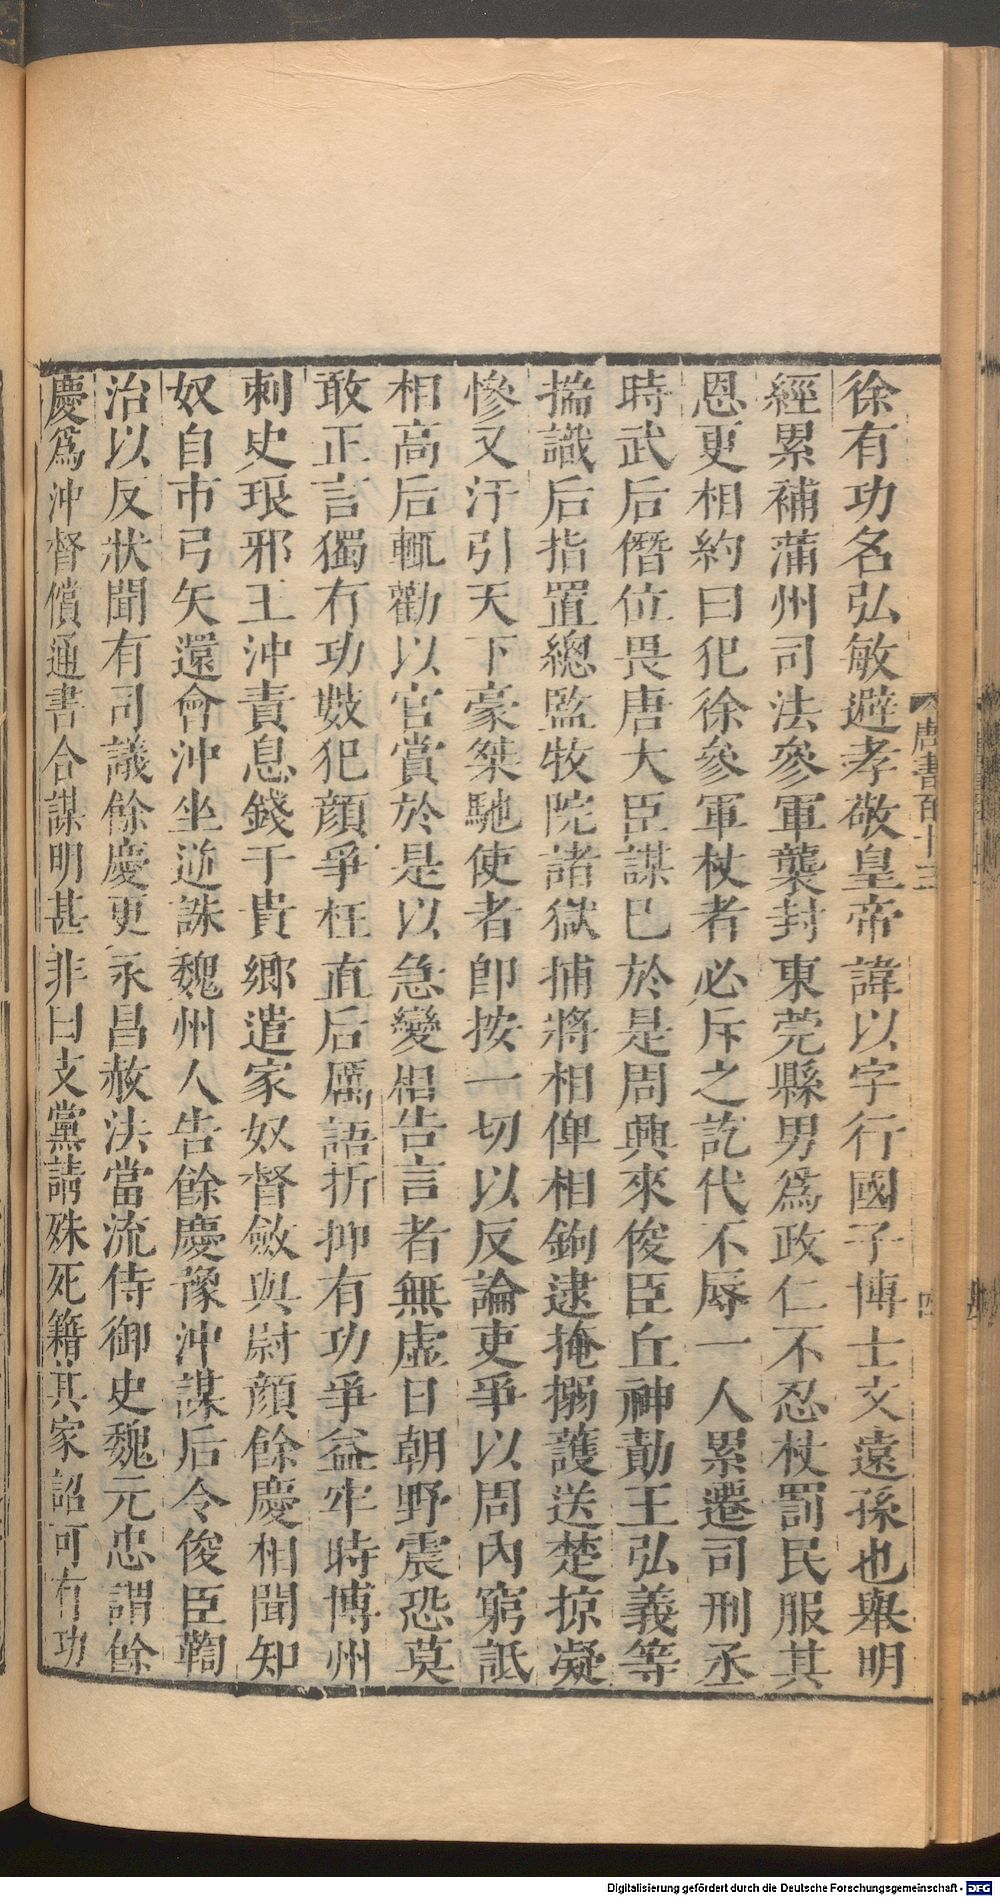 徐有功名弘敏避孝敬皇帝諱以字行國子博士文遠孫也舉明
經累補蒲州司法參軍襲封東莞縣男爲政仁不忍杖罰民服其
恩更相約曰犯徐參軍杖者必斥之訖代不辱一人累遷司刑丞
時武后僭位畏唐大臣謀已於是周興來俊臣丘神勣王弘義等
揣識后指置總監牧院諸獄捕將相俾相鉤逮掩搦護送楚掠凝
慘又汙引天下豪桀馳使者即按一切以反論吏爭以周內窮詆
相高后輒勸以官賞於是以急變相告言者無虛日朝野震恐莫
敢正言獨有功數犯顏爭枉直后厲語折抑有功爭益牢時博州
刺史琅邪王沖責息錢于貴鄉遣家奴督斂與尉顏餘慶相聞知
奴自市弓矢還會沖坐逆誅魏州人告餘慶豫沖謀后令俊臣鞫
治以反狀聞有司議餘慶更永昌赦法當流侍御史魏元忠謂餘
慶爲沖督償通書合謀明甚非曰支黨請殊死籍其家詔可有功
唐書百十三
四
Digitalisierung gefördert durch die Deutsche Forschungsgemeinschaft - DFG